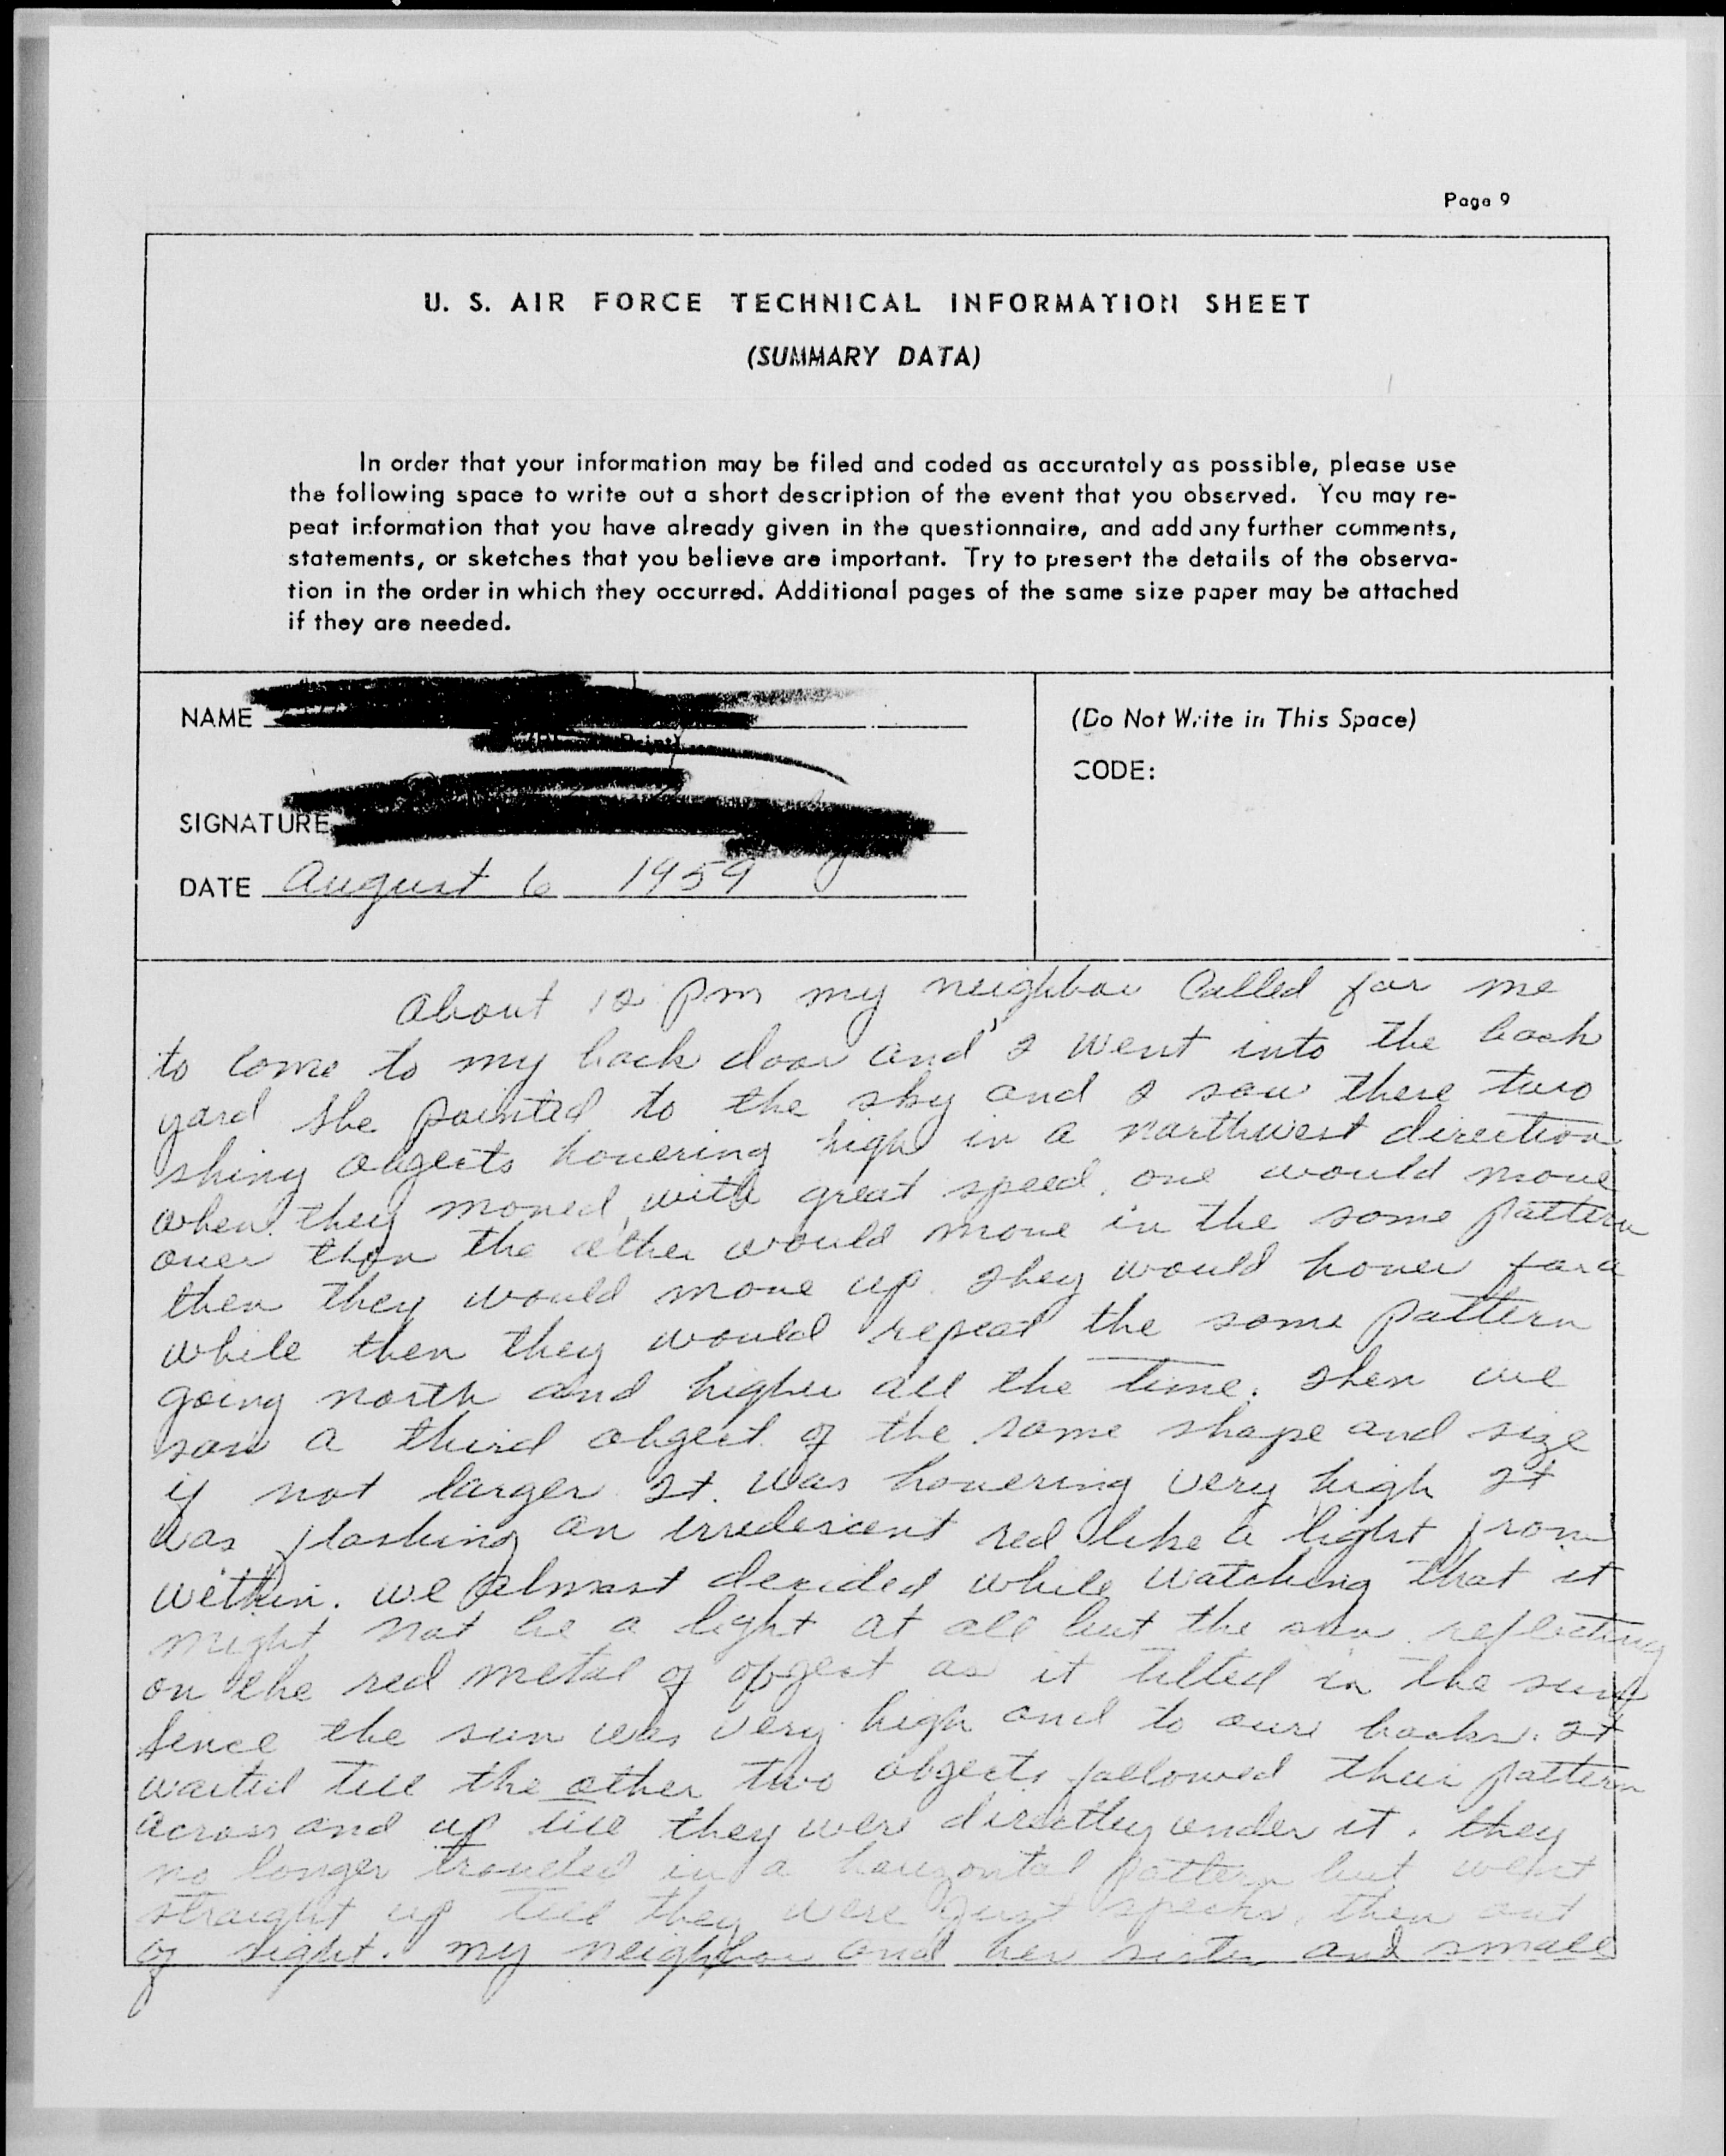 Page 9
U. S. AIR FORCE TECHNICAL INFORMATION SHEET
(SUMMARY DATA)
In order that your information may be filed and coded as accurately as possible, please use
the following space to write out a short description of the event that you observed. You may re-
peat information that you have already given in the questionnaire, and add any further comments,
statements, or sketches that you believe are important. Try to present the details of the observa-
tion in the order in which they occurred. Additional pages of the same size paper may be attached
if they are needed.
NAME
(Do Not Write in This Space)
CODE:
SIGNATURE
DATE August 6 1959
About 12 pm my neighbor called for me
to come to my back door and I went into the back
yard she pointed to the sky and I saw these two
shiny objects hovering high in a northwest direction
when they moved, with great speed, one would move
over then the other would move in the same pattern
then they would move up. They would hover for a
while then they would repeat the same pattern
going north and higher all the time. Then we
saw a third object of the same shape and size
if not larger It was hovering very high It
was flashing an irredescent red like a light from
within. we almost decided while watching that it
might not be a light at all but the sun reflecting
on the red metal of object as it tilted in the sun
sence the sun was very high and to ours backs. It
waited till the other two objects followed their pattern
across and up till they were directley under it. they
no longer traveled in a horizontal pattern but went
straight up till they were just specks, then out
of sight. my neighbor and her sister and small